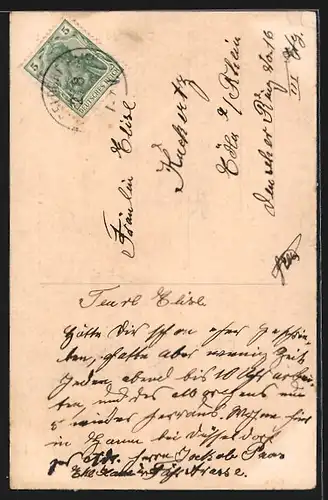 5
5
DEUTSCHES REICH
Fräulein Elise
Kuckertz
Cöln a/Rhein
Deutscher Ring No 16
III Etg.
Teure Elise
Hätte Dir schon eher geschrie-
ben, hatte aber wenig Zeit
jeden abend bis 10 Uhr arbei-
ten und des morgens um
5 wieder herraus. Wohne hier
in Hamm bei Düsseldorf
per Adr. Herrn Jakob Paas